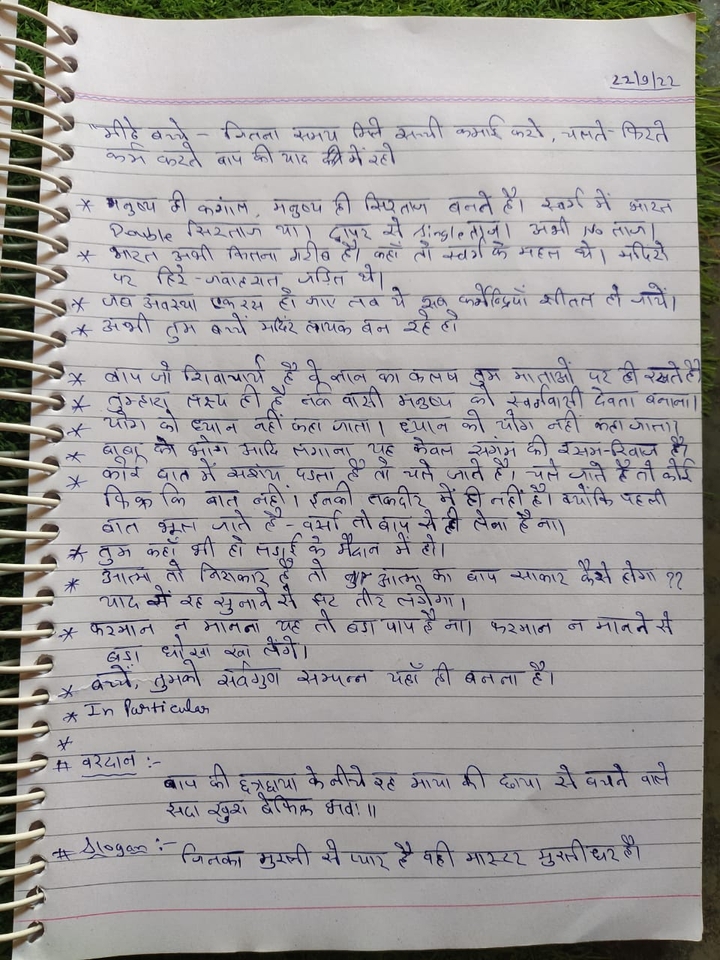 22/9/22
"मीठे बच्चे - जितना समय मिले सच्ची कमाई करो, चलते-फिरते
कर्म करते बाप की याद में रहो
* मनुष्य ही कंगाल, मनुष्य ही सिरताज बनते है। स्वर्ग में भारत
Double सिरताज था। द्वापर से single ताज। अभी No ताज।
* भारत अभी कितना गरीब है। कहाँ तो स्वर्ग के महल थे। मंदिरो
पर हिरे-जवाहरात जड़ित थे।
* जब अवस्था एकरस हो जाए तब ये सब कर्मेन्द्रियाँ शीतल हो जायें।
* अभी तुम बच्चें मंदिर लायक बन रहे हो
* बाप जो शिवाचार्य है वे ज्ञान का कलष तुम माताओं पर ही रखते है।
* तुम्हारा लक्ष्य ही है नर्क वासी मनुष्य को स्वर्गवासी देवता बनाना।
* योग को ध्यान नहीं कहा जाता। ध्यान को योग नहीं कहा जाता।
* बाबा को भोग आदि लगाना यह केवल संगम की रसम-रिवाज है।
* कोई बात में सशंय पडता है तो चले जाते है। चले जाते है तो कोई
फिक्र कि बात नहीं। इनकी तकदीर में ही नहीं है। क्योंकि पहली
बात भूल जाते है - वर्सा तो बाप से ही लेना है ना।
* तुम कहाँ भी हो लड़ाई के मैदान में हो।
* आत्मा तो निराकार है तो आत्मा का बाप साकार कैसे होगा ??
याद में रह सुनाने से झट तीर लगेगा।
* फरमान न मानना यह तो बडा पाप है ना। फरमान न मानने से
बड़ा धोखा खा लेंगे।
* बच्चें, तुमको सर्वगुण सम्पन्न यहाँ ही बनना है।
* In Particular
*
* वरदान :-
बाप की छत्रछाया के नीचे रह माया की छाया से बचने वाले
सदा खुश बेफिक्र भवः॥
* Slogan :-
जिनका मुरली से प्यार है वही मास्टर मुरलीधर है।